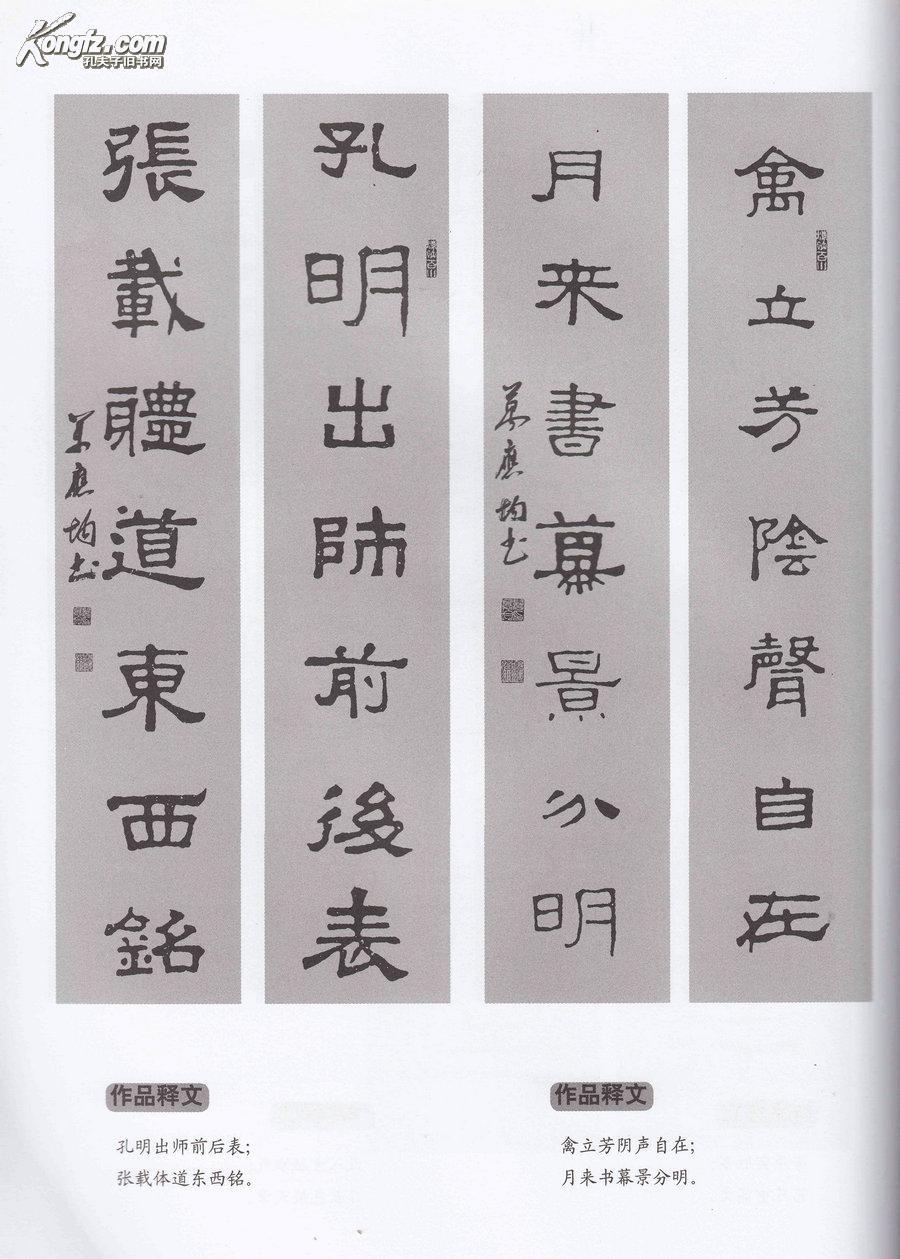 Kongfz.com
孔夫子旧书网
禽立芳陰聲自在
月来書幕景分明
應均书
孔明出師前後表
張載體道東西銘
應均书
作品释文
孔明出师前后表;
张载体道东西铭。
作品释文
禽立芳阴声自在;
月来书幕景分明。